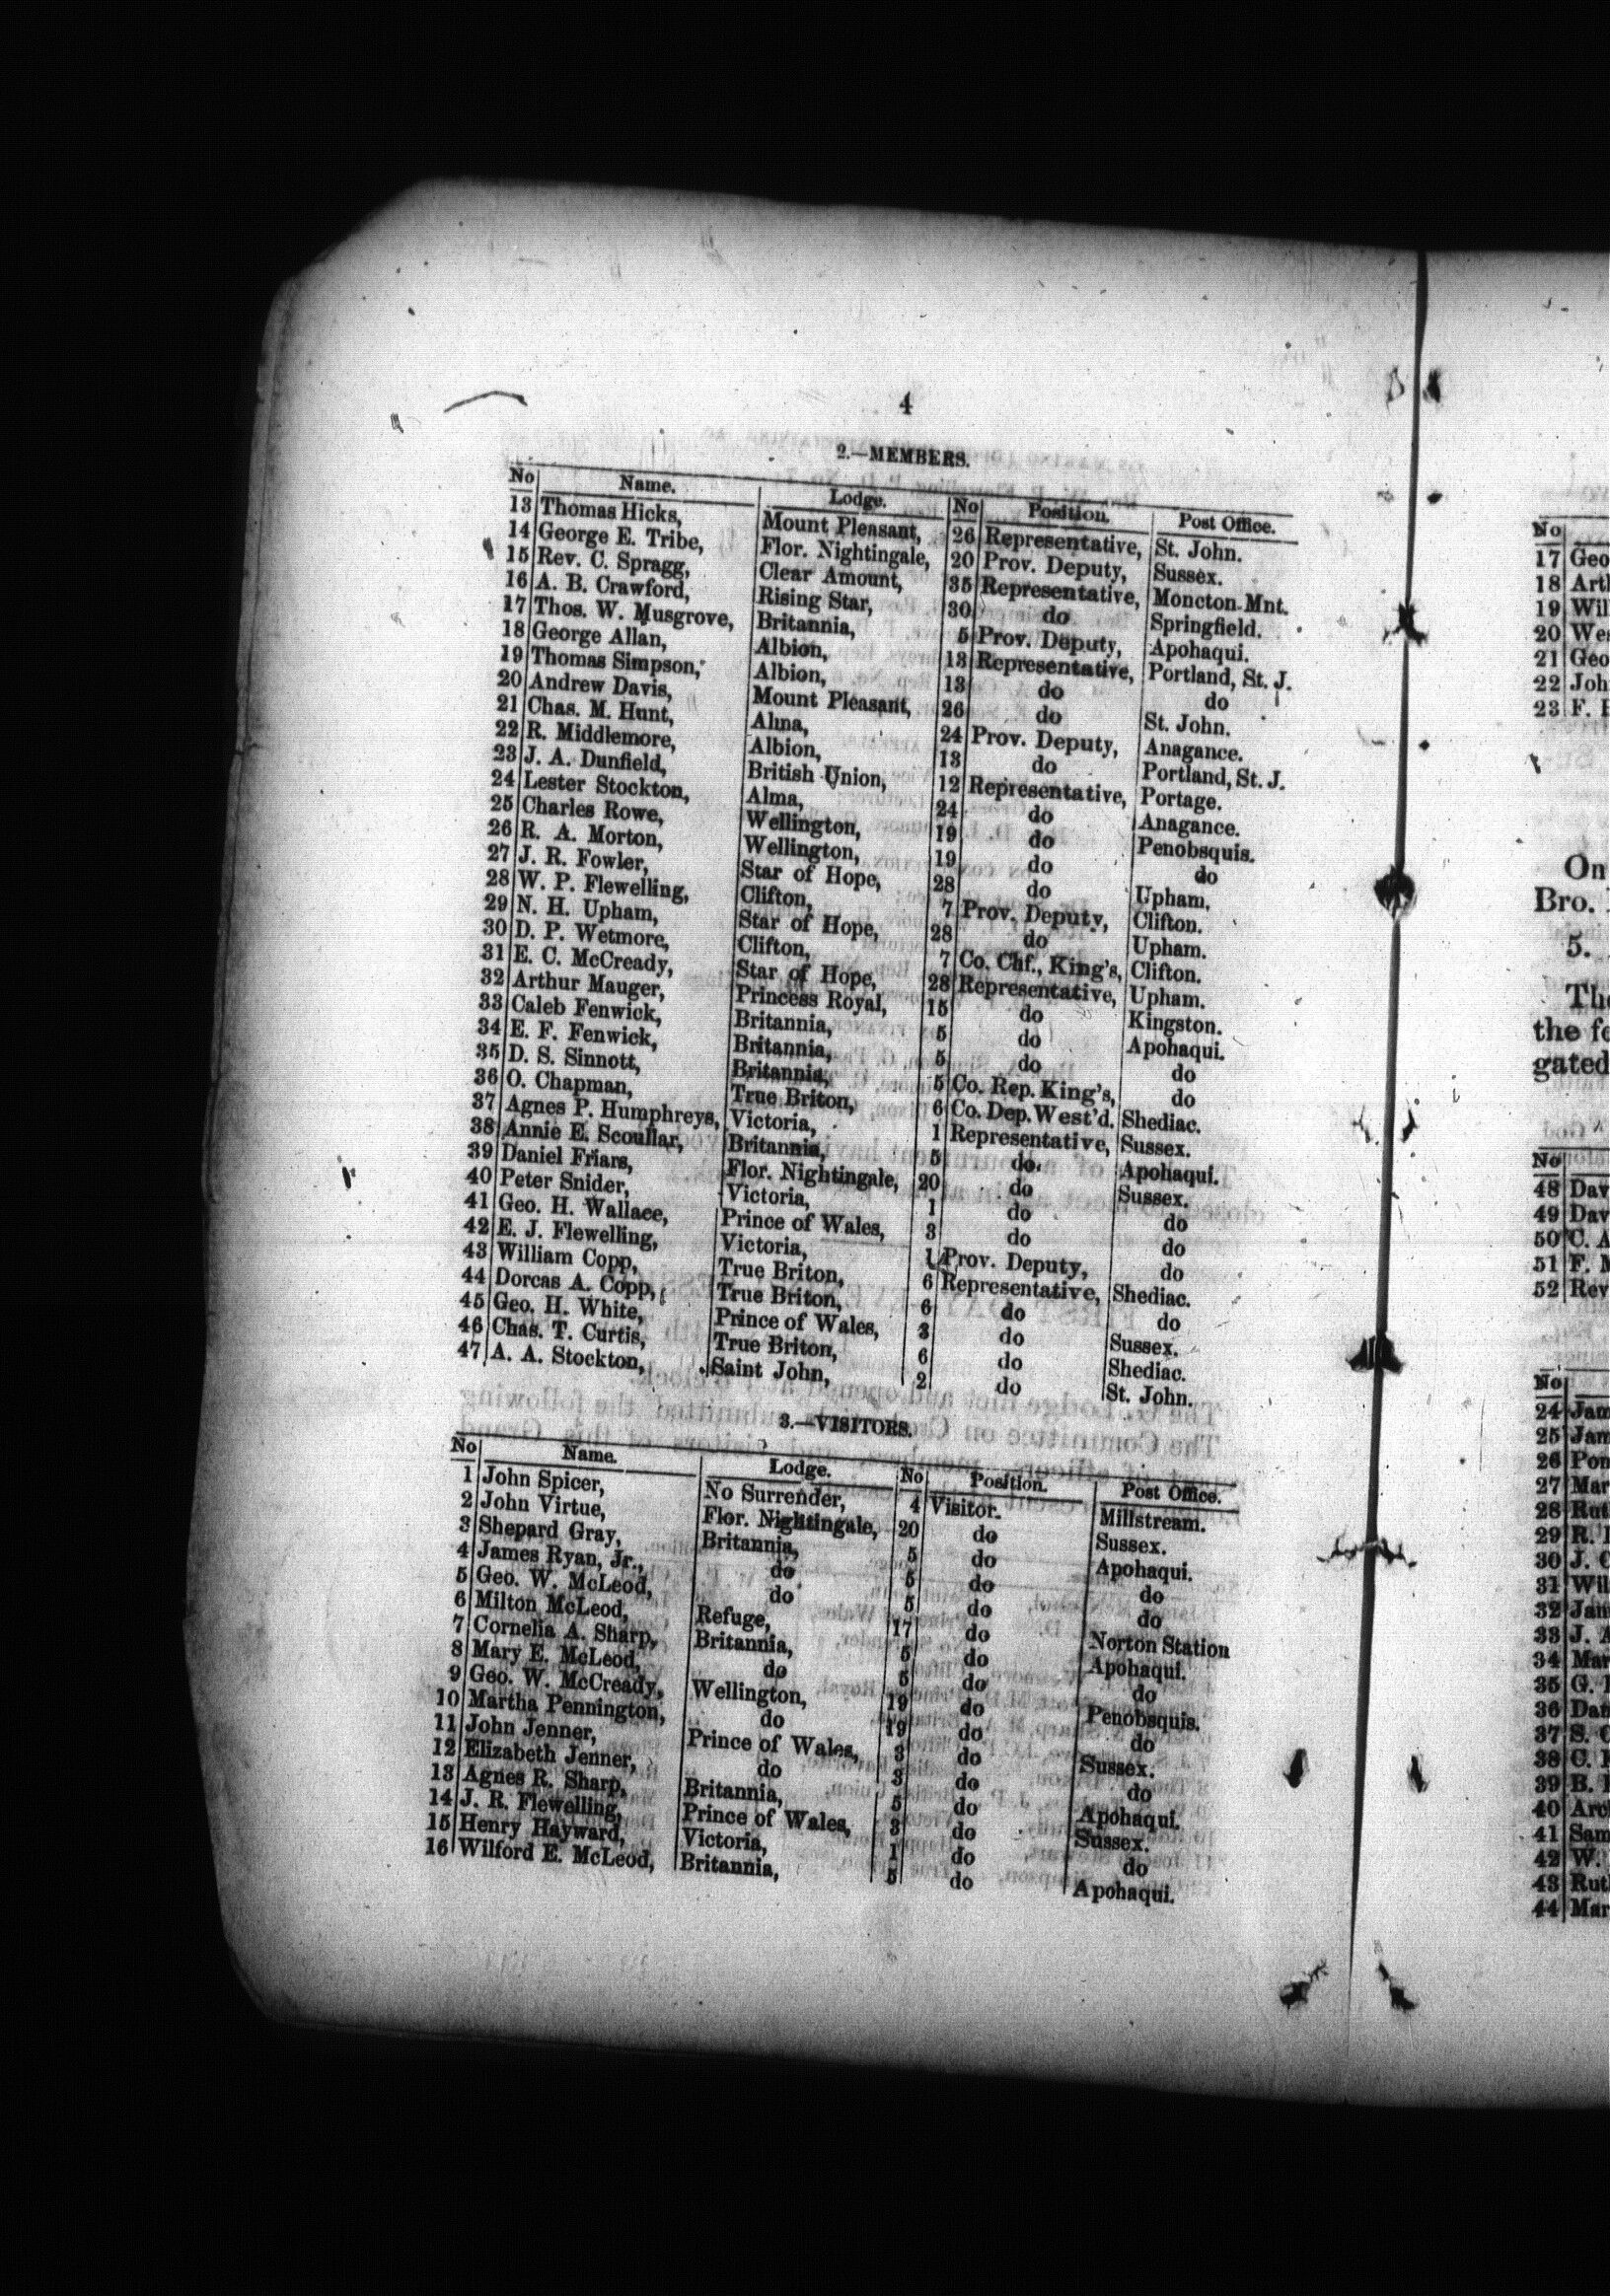 4
2.—MEMBERS.
No Name. Lodge. No Position. Post Office.
13 Thomas Hicks, Mount Pleasant, 26 Representative, St. John.
14 George E. Tribe, Flor. Nightingale, 20 Prov. Deputy, Sussex.
15 Rev. C. Spragg, Clear Amount, 35 Representative, Moncton Mnt.
16 A. B. Crawford, Rising Star, 30 do Springfield.
17 Thos. W. Musgrove, Britannia, 5 Prov. Deputy, Apohaqui.
18 George Allan, Albion, 13 Representative, Portland, St. J.
19 Thomas Simpson, Albion, 13 do do
20 Andrew Davis, Mount Pleasant, 26 do St. John.
21 Chas. M. Hunt, Alma, 24 Prov. Deputy, Anagance.
22 R. Middlemore, Albion, 13 do Portland, St. J.
23 J. A. Dunfield, British Union, 12 Representative, Portage.
24 Lester Stockton, Alma, 24 do Anagance.
25 Charles Rowe, Wellington, 19 do Penobsquis.
26 R. A. Morton, Wellington, 19 do do
27 J. R. Fowler, Star of Hope, 28 do Upham.
28 W. P. Flewelling, Clifton, 7 Prov. Deputy, Clifton.
29 N. H. Upham, Star of Hope, 28 do Upham.
30 D. P. Wetmore, Clifton, 7 Co. Chf., King's, Clifton.
31 E. C. McCready, Star of Hope, 28 Representative, Upham.
32 Arthur Mauger, Princess Royal, 15 do Kingston.
33 Caleb Fenwick, Britannia, 5 do Apohaqui.
34 E. F. Fenwick, Britannia, 5 do do
35 D. S. Sinnott, Britannia, 5 Co. Rep. King's, do
36 O. Chapman, True Briton, 6 Co. Dep. West'd. Shediac.
37 Agnes P. Humphreys, Victoria, 1 Representative, Sussex.
38 Annie E. Scoullar, Britannia, 5 do Apohaqui.
39 Daniel Friars, Flor. Nightingale, 20 do Sussex.
40 Peter Snider, Victoria, 1 do do
41 Geo. H. Wallace, Prince of Wales, 3 do do
42 E. J. Flewelling, Victoria, 1 Prov. Deputy, do
43 William Copp, True Briton, 6 Representative, Shediac.
44 Dorcas A. Copp, True Briton, 6 do do
45 Geo. H. White, Prince of Wales, 3 do Sussex.
46 Chas. T. Curtis, True Briton, 6 do Shediac.
47 A. A. Stockton, Saint John, 2 do St. John.
3.—VISITORS.
No Name. Lodge. No Position. Post Office.
1 John Spicer, No Surrender, 4 Visitor. Millstream.
2 John Virtue, Flor. Nightingale, 20 do Sussex.
3 Shepard Gray, Britannia, 5 do Apohaqui.
4 James Ryan, Jr., do 5 do do
5 Geo. W. McLeod, do 5 do do
6 Milton McLeod, Refuge, 17 do Norton Station
7 Cornelia A. Sharp, Britannia, 5 do Apohaqui.
8 Mary E. McLeod, do 5 do do
9 Geo. W. McCready, Wellington, 19 do Penobsquis.
10 Martha Pennington, do 19 do do
11 John Jenner, Prince of Wales, 3 do Sussex.
12 Elizabeth Jenner, do 3 do do
13 Agnes R. Sharp, Britannia, 5 do Apohaqui.
14 J. R. Flewelling, Prince of Wales, 3 do Sussex.
15 Henry Hayward, Victoria, 1 do do
16 Wilford E. McLeod, Britannia, 5 do Apohaqui.
No
17 Geo
18 Art
19 Wil
20 We
21 Geo
22 Joh
23 F.
On
Bro.
5.
The
the fo
gated
No
48 Dav
49 Dav
50 C. A
51 F. M
52 Rev
No
24 Jam
25 Jam
26 Pon
27 Mar
28 Rut
29 R.
30 J. C
31 Wil
32 Jam
33 J. A
34 Mar
35 G.
36 Dan
37 S. C
38 C.
39 B.
40 Arc
41 Sam
42 W.
43 Rut
44 Mar